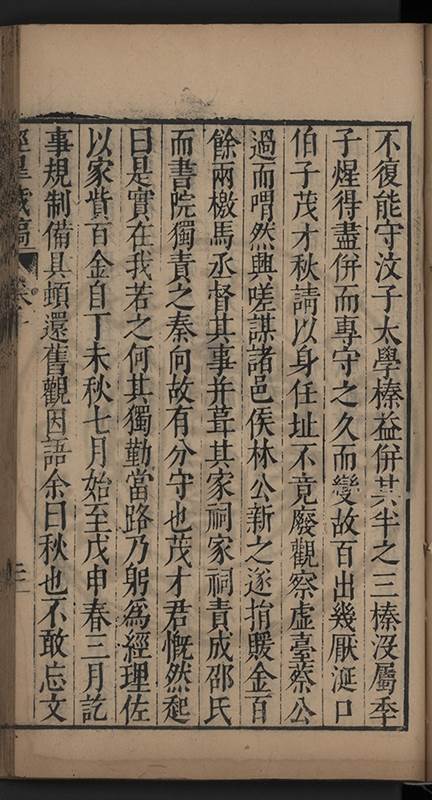 不復能守汶子太學榛益併其半之三榛沒屬季
子煋得盡併而專守之久而變故百出幾厭涎口
伯子茂才秋請以身任址不竟廢觀察虛臺蔡公
過而喟然興嗟謀諸邑侯林公新之遂捐贖金百
餘兩檄馬丞督其事并葺其家祠家祠責成邵氏
而書院獨責之秦何故有分守也茂才君慨然起
曰是實在我若之何其獨勤當路乃躬為經理佐
以家貲百金自丁未秋七月始至戊申春三月訖
事規制備具頓還舊觀因語余曰秋也不敢忘文
涇皐藏稿 卷十